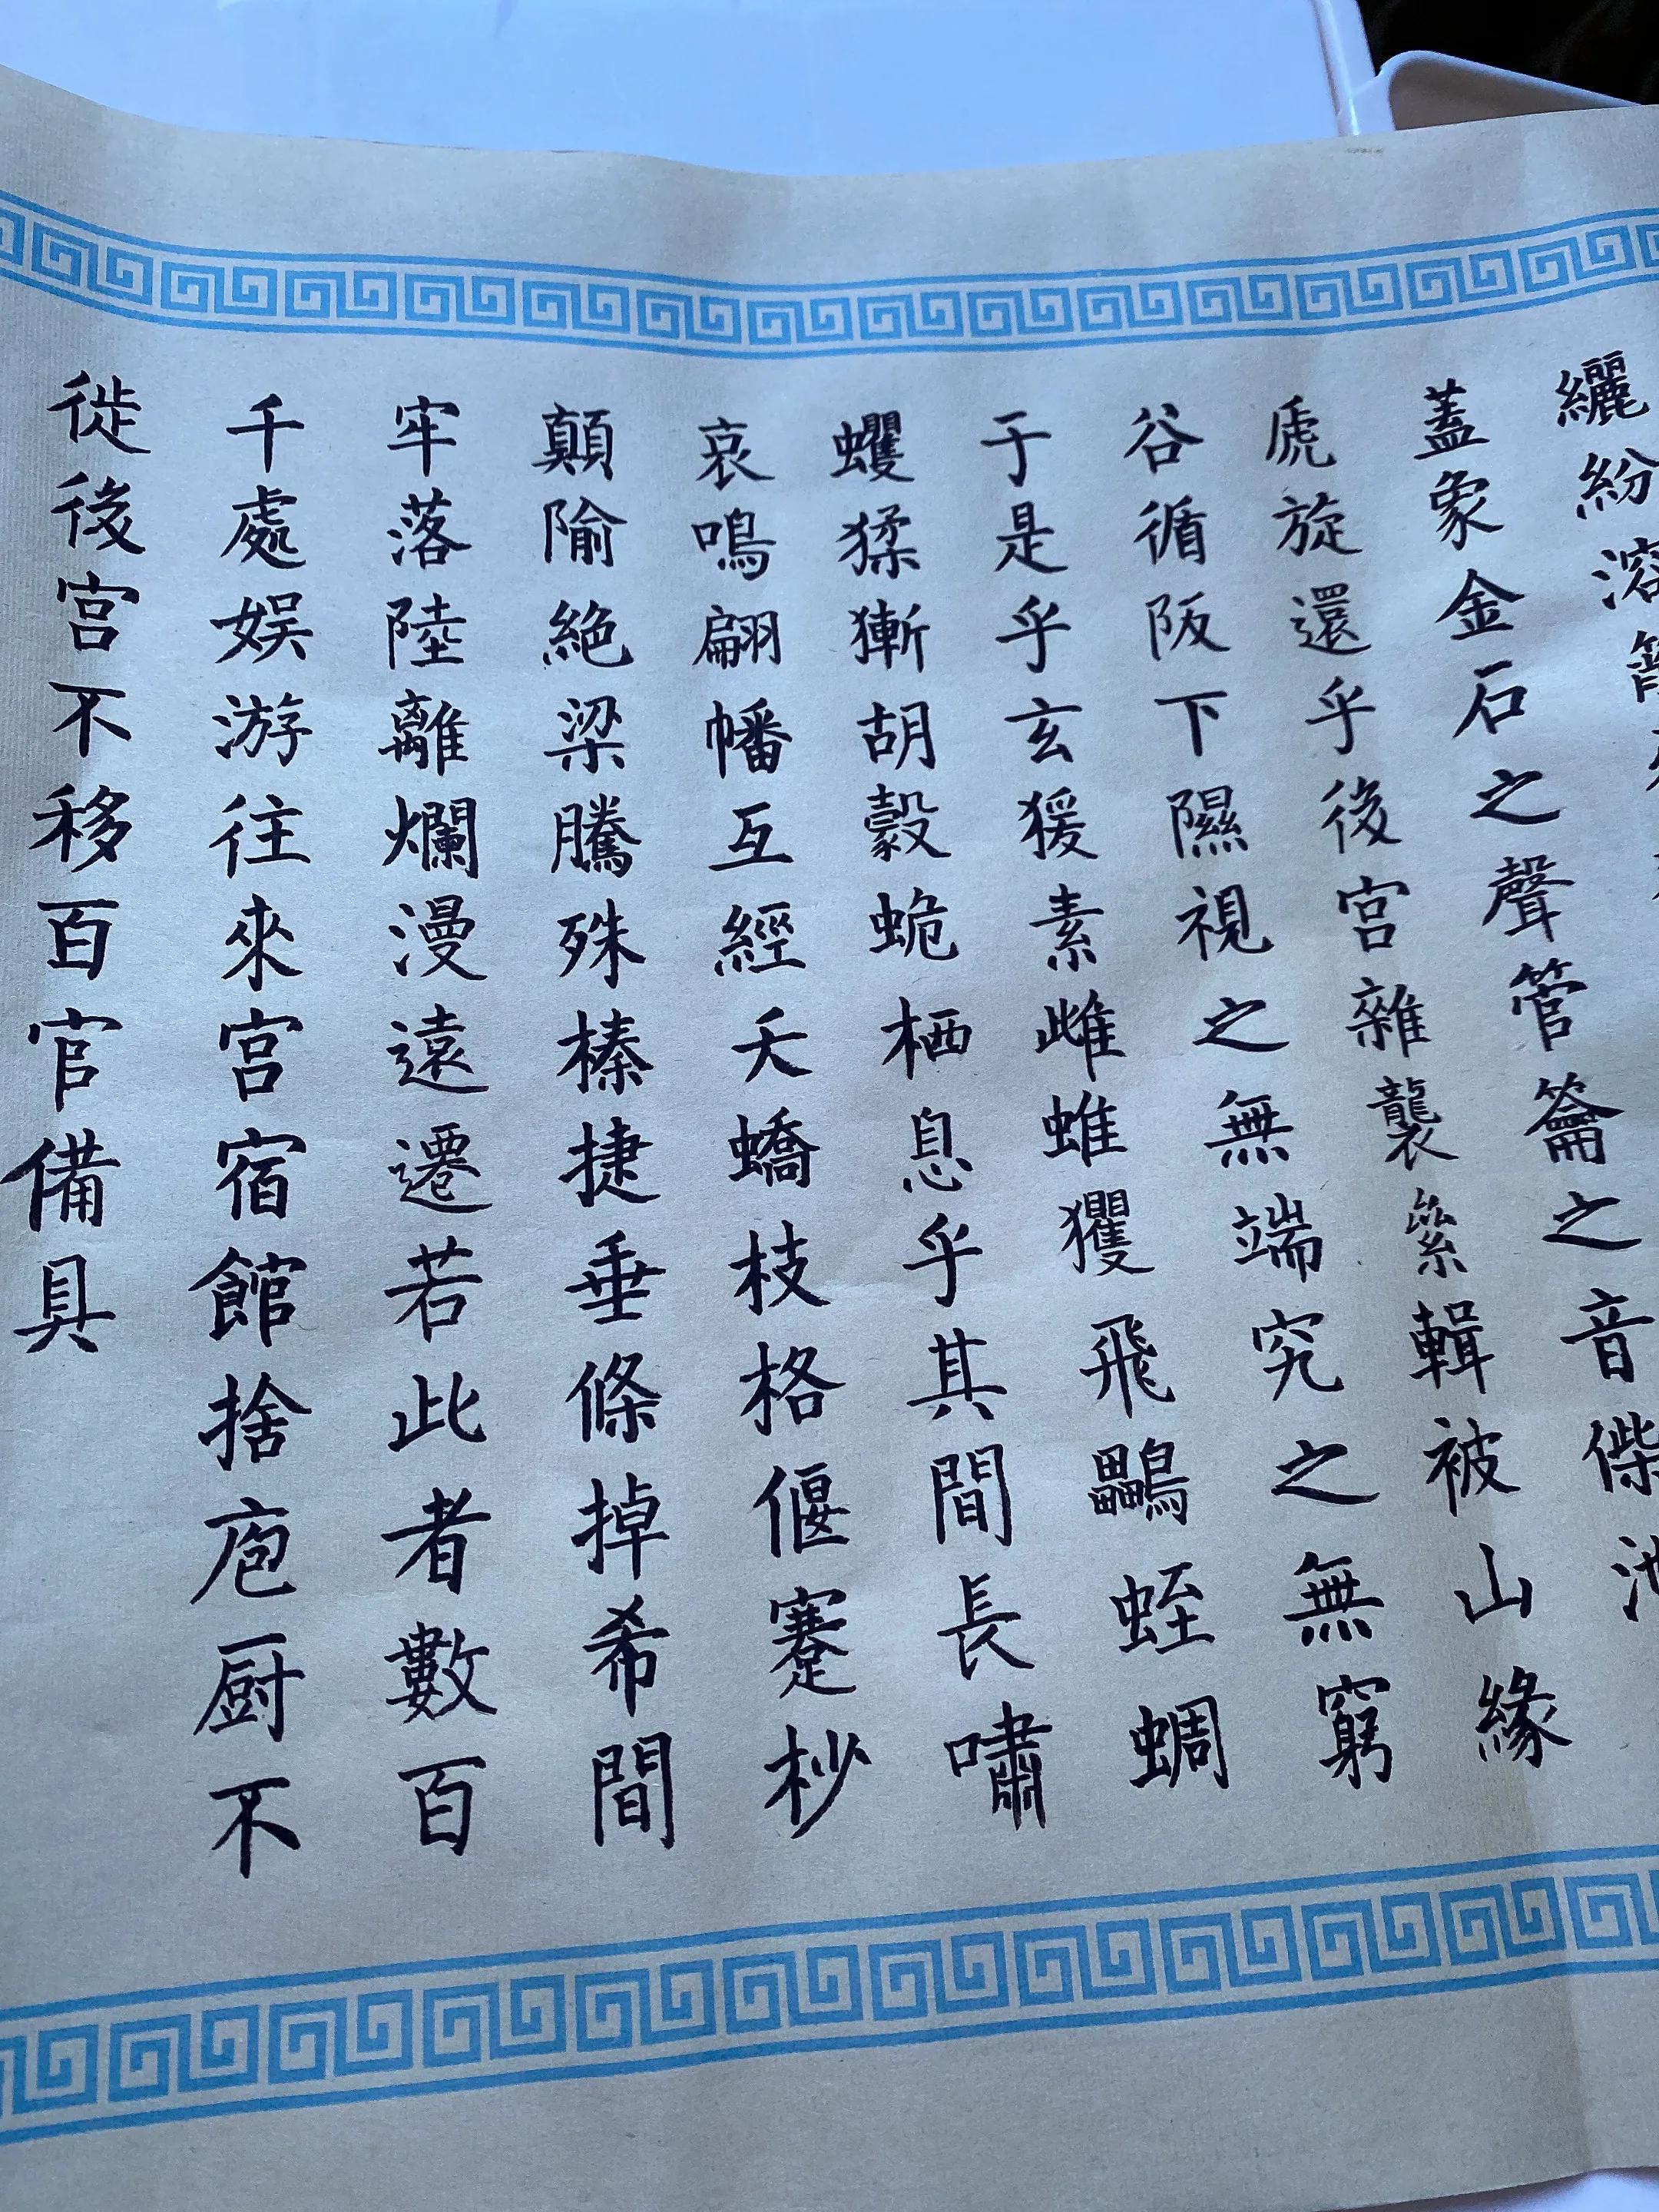 纚紛溶
蓋象金石之聲管籥之音偨池
虒旋還乎後宮雜襲絫輯被山緣
谷循阪下隰視之無端究之無窮
于是乎玄猨素雌蜼玃飛鸓蛭蜩
蠼猱獑胡豰蛫栖息乎其間長嘯
哀鳴翩幡互經夭蟜枝格偃蹇杪
顛隃絶梁騰殊榛捷垂條掉希間
牢落陸離爛漫遠遷若此者數百
千處娱游往來宮宿館捨庖厨不
徙後宮不移百官備具